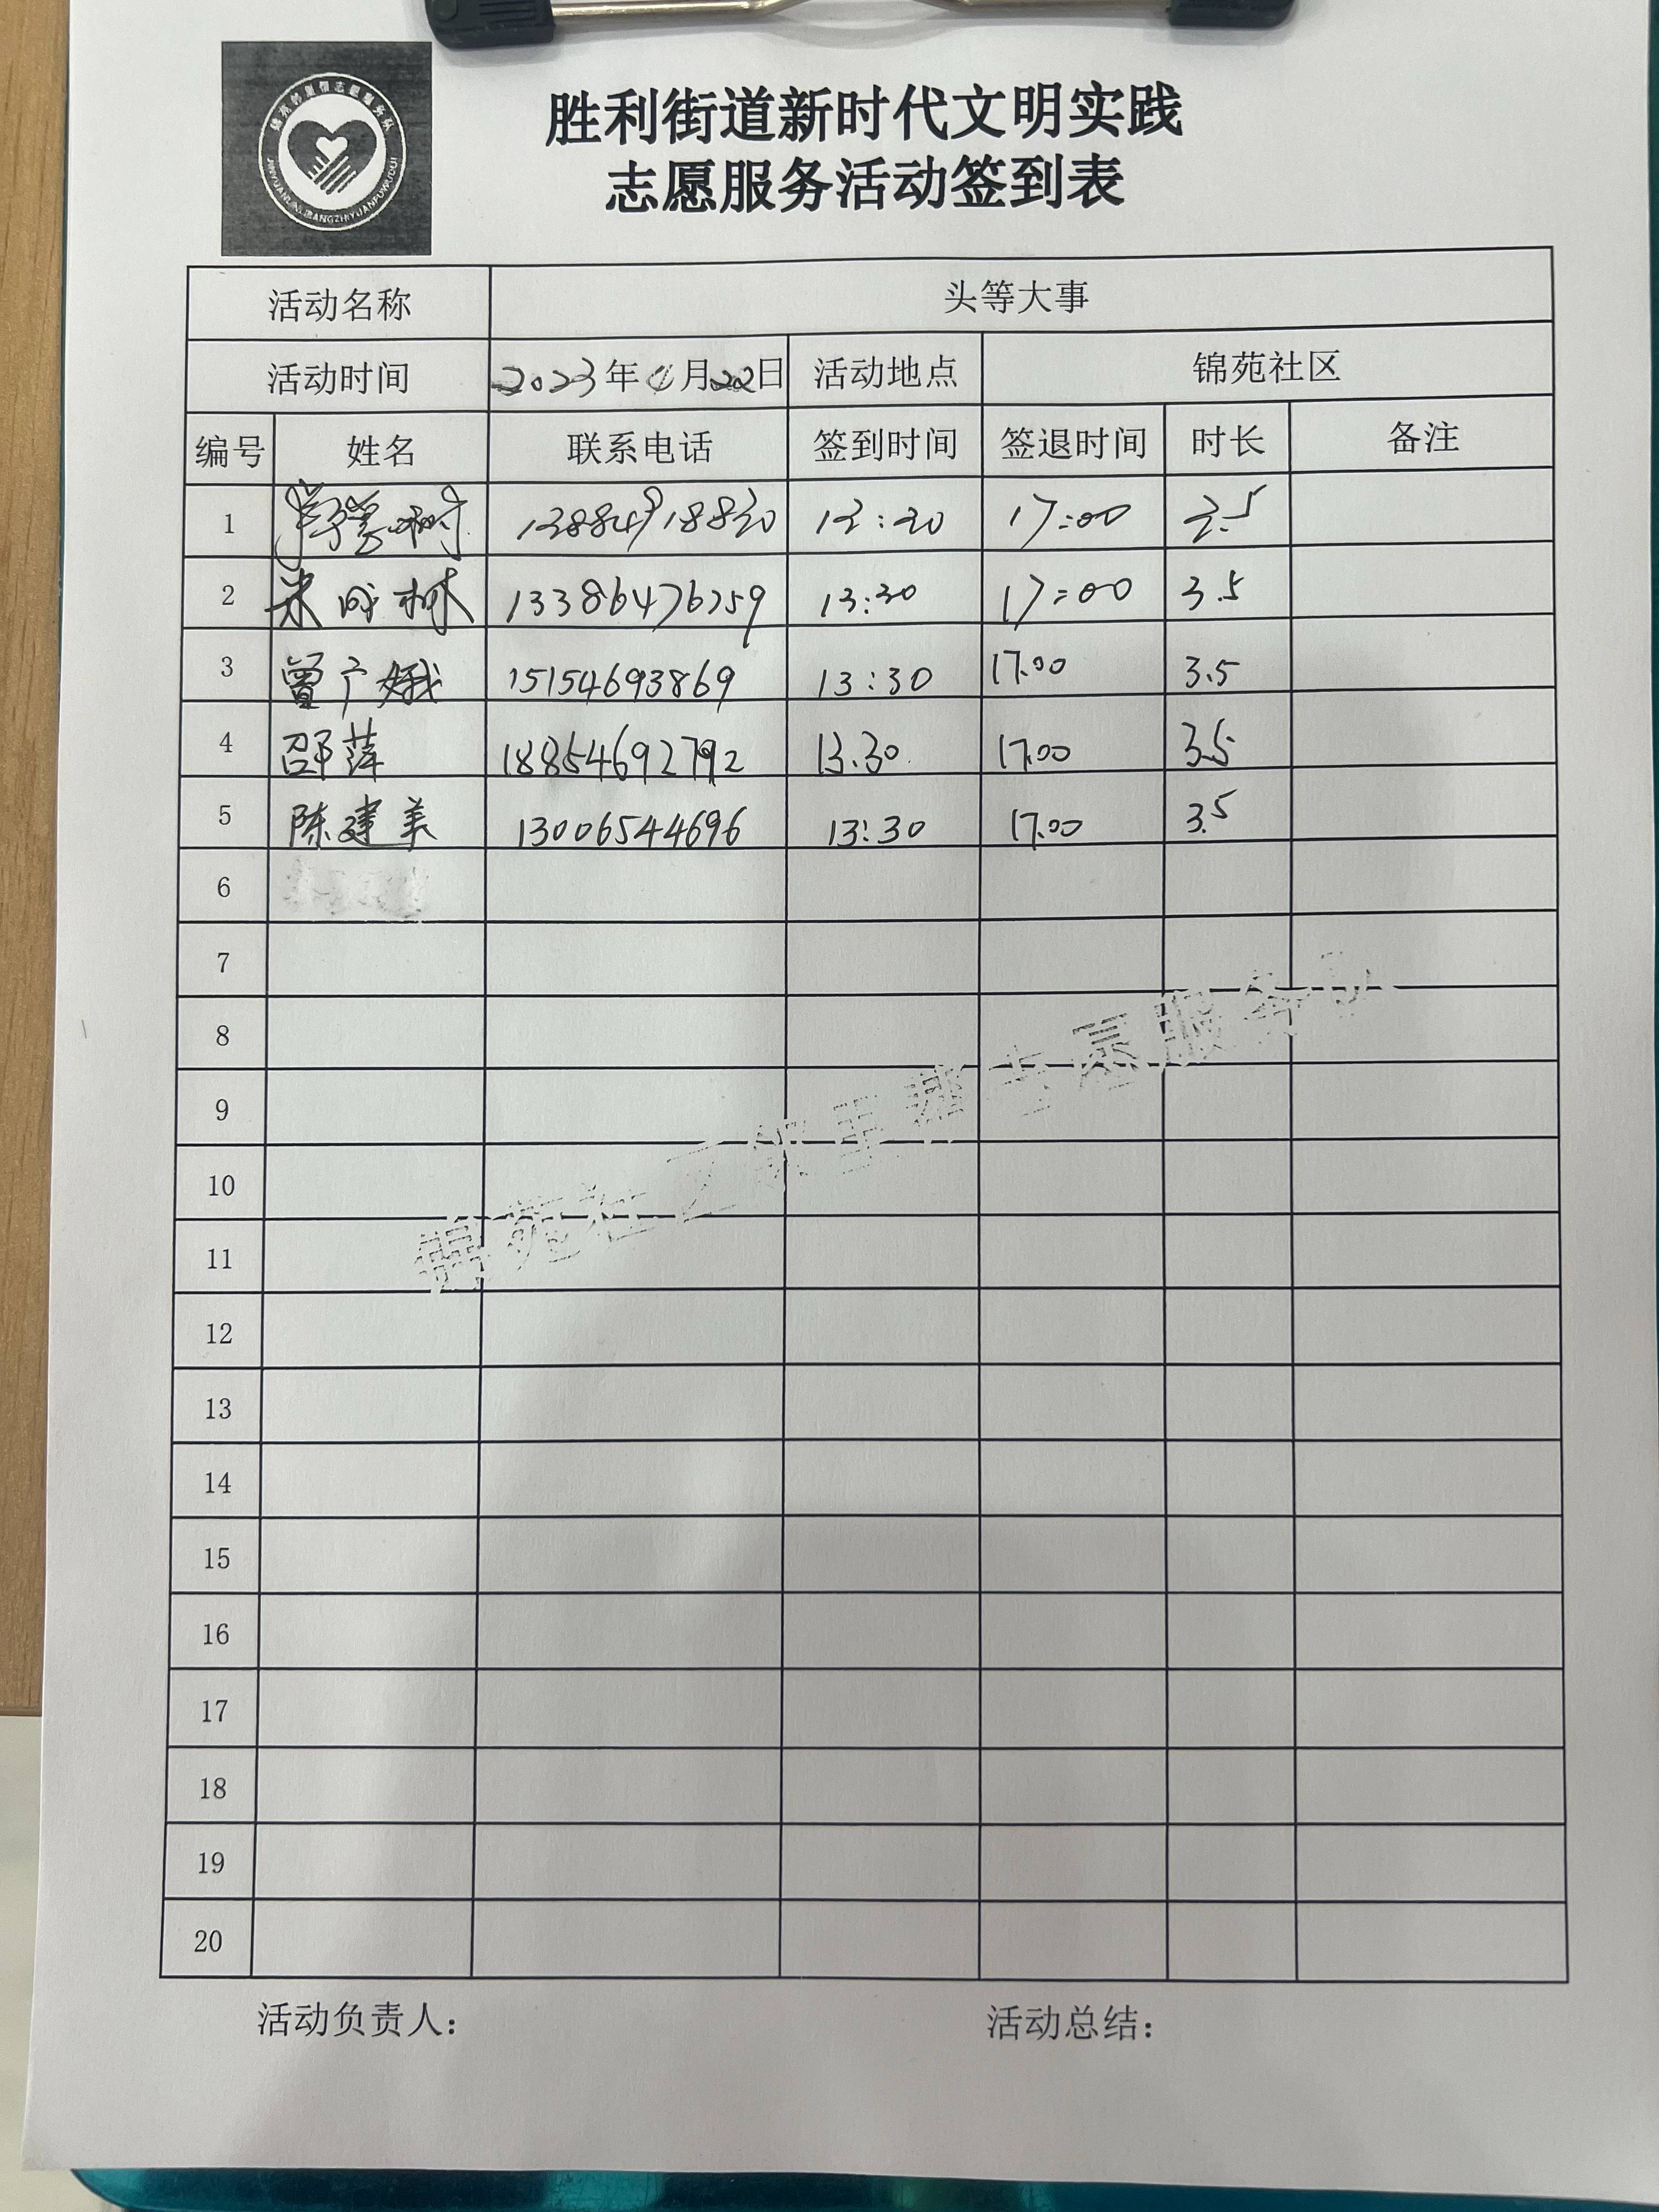 锦苑邻里帮志愿服务队
JINYUANLINLIBANGZHIYUANFUWUDUI
胜利街道新时代文明实践
志愿服务活动签到表
活动名称 头等大事
活动时间 2023年 月22日 活动地点 锦苑社区
编号 姓名 联系电话 签到时间 签退时间 时长 备注
1 17:00
2 13386476259 13:30 17:00 3.5
3 曾广娥 15154693869 13:30 17.00 3.5
4 邵萍 18854692792 13.30 17.00 3.5
5 陈建美 13006544696 13:30 17.00 3.5
6
7
8
9
10
11
12
13
14
15
16
17
18
19
20
锦苑社区邻里帮志愿服务队
活动负责人： 活动总结：